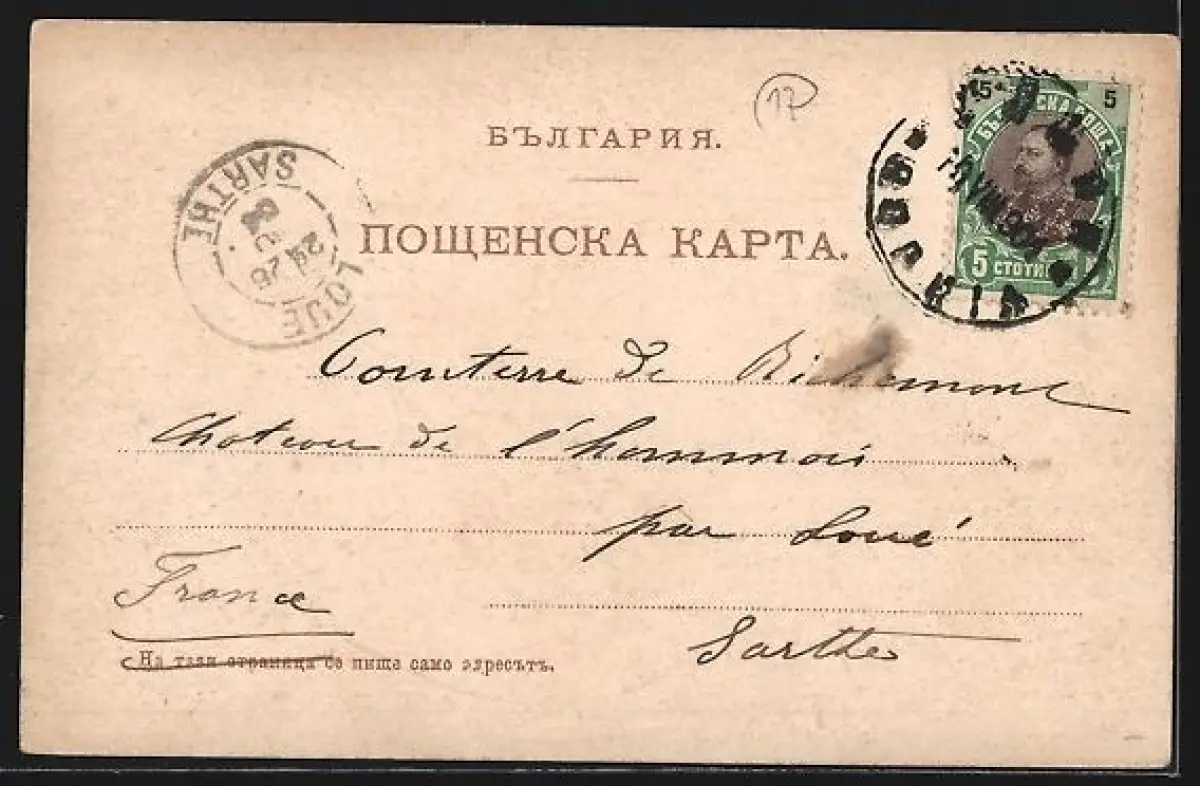 17
БЪЛГАРИЯ.
ПОЩЕНСКА КАРТА.
5 5
БЪЛГАРСКА ПОЩА
5 СТОТИНКИ
SARTHE
LOUÉ
Comtesse de Richemont
Chateau de l'hommois
par Loué
France
Sarthe
На тази страница се пише само адресътъ.